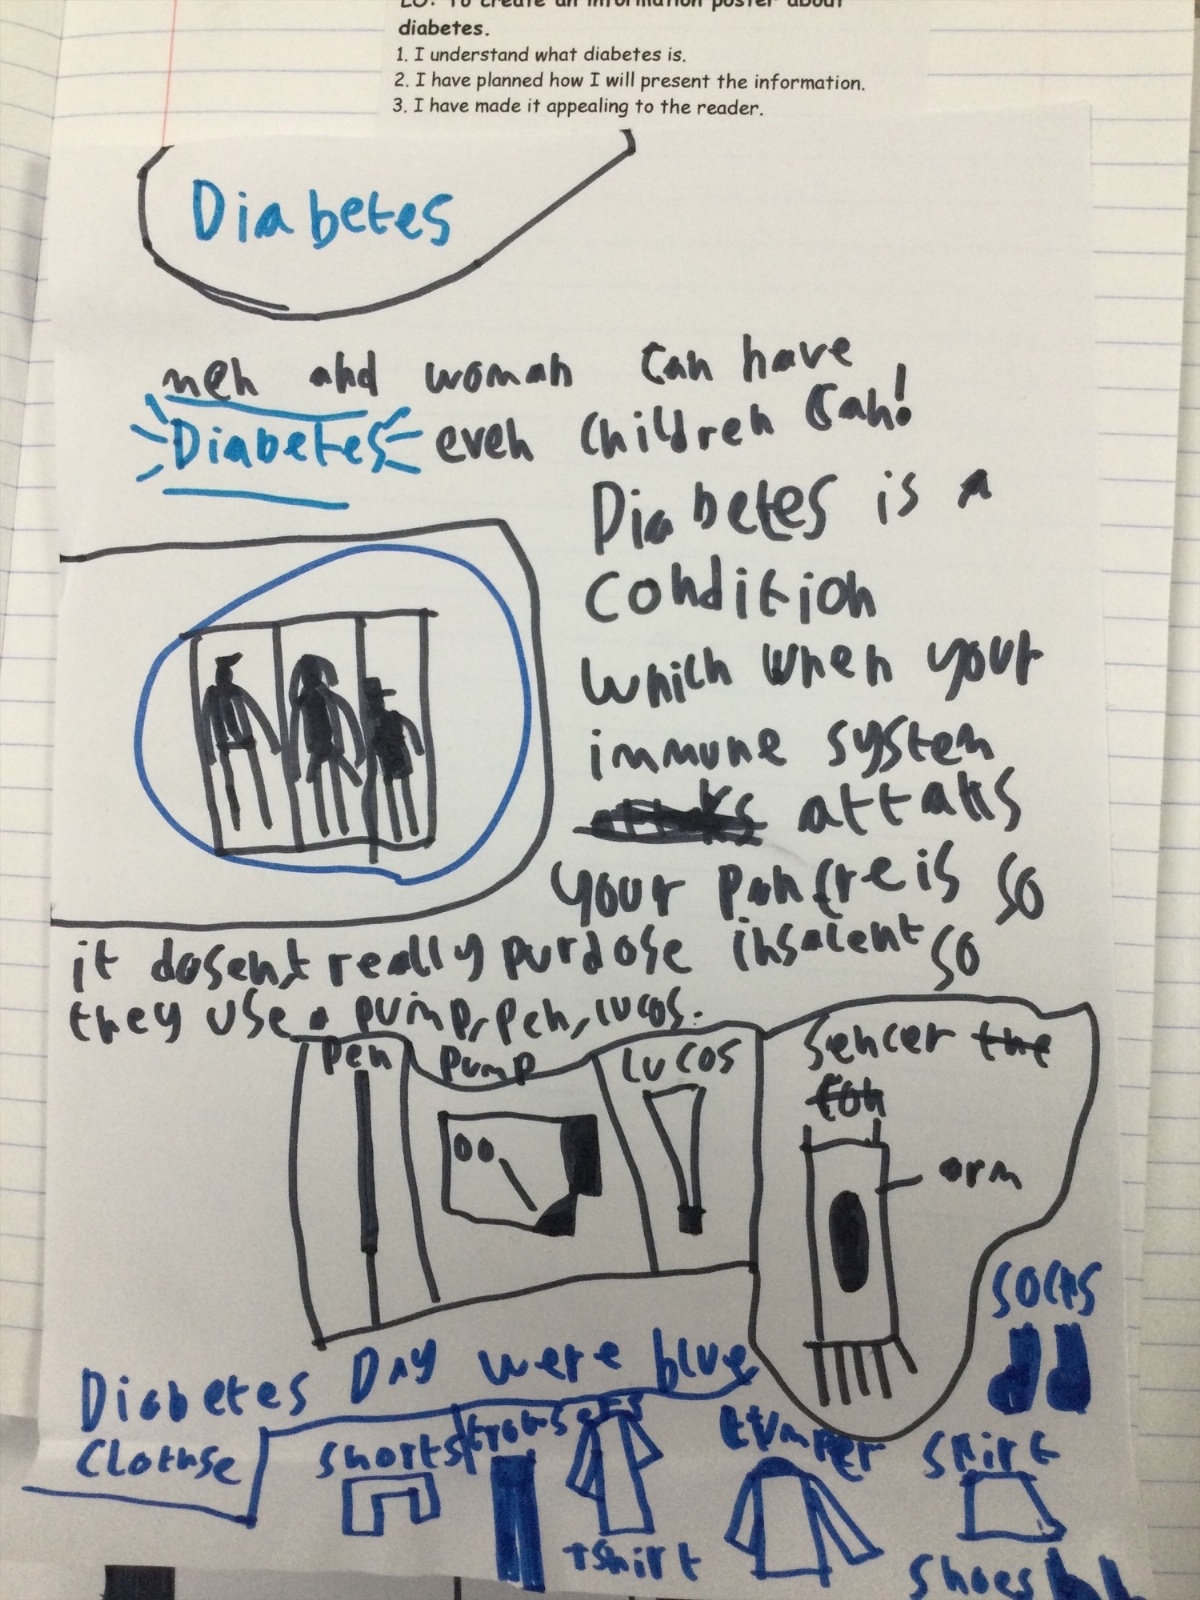 LO: To create an information poster about
diabetes.
1. I understand what diabetes is.
2. I have planned how I will present the information.
3. I have made it appealing to the reader.
Diabetes
men and woman can have
Diabetes even children can!
Diabetes is a
condition
which when your
immune system
attaks
your pancreis so
it dosent really purdose insalent so
they use a pump, pen, lucos.
pen
pump
lucos
sencer the
arm
socks
Diabetes Day were blue
Clothse
shorts
trousers
tshirt
skirt
shoes